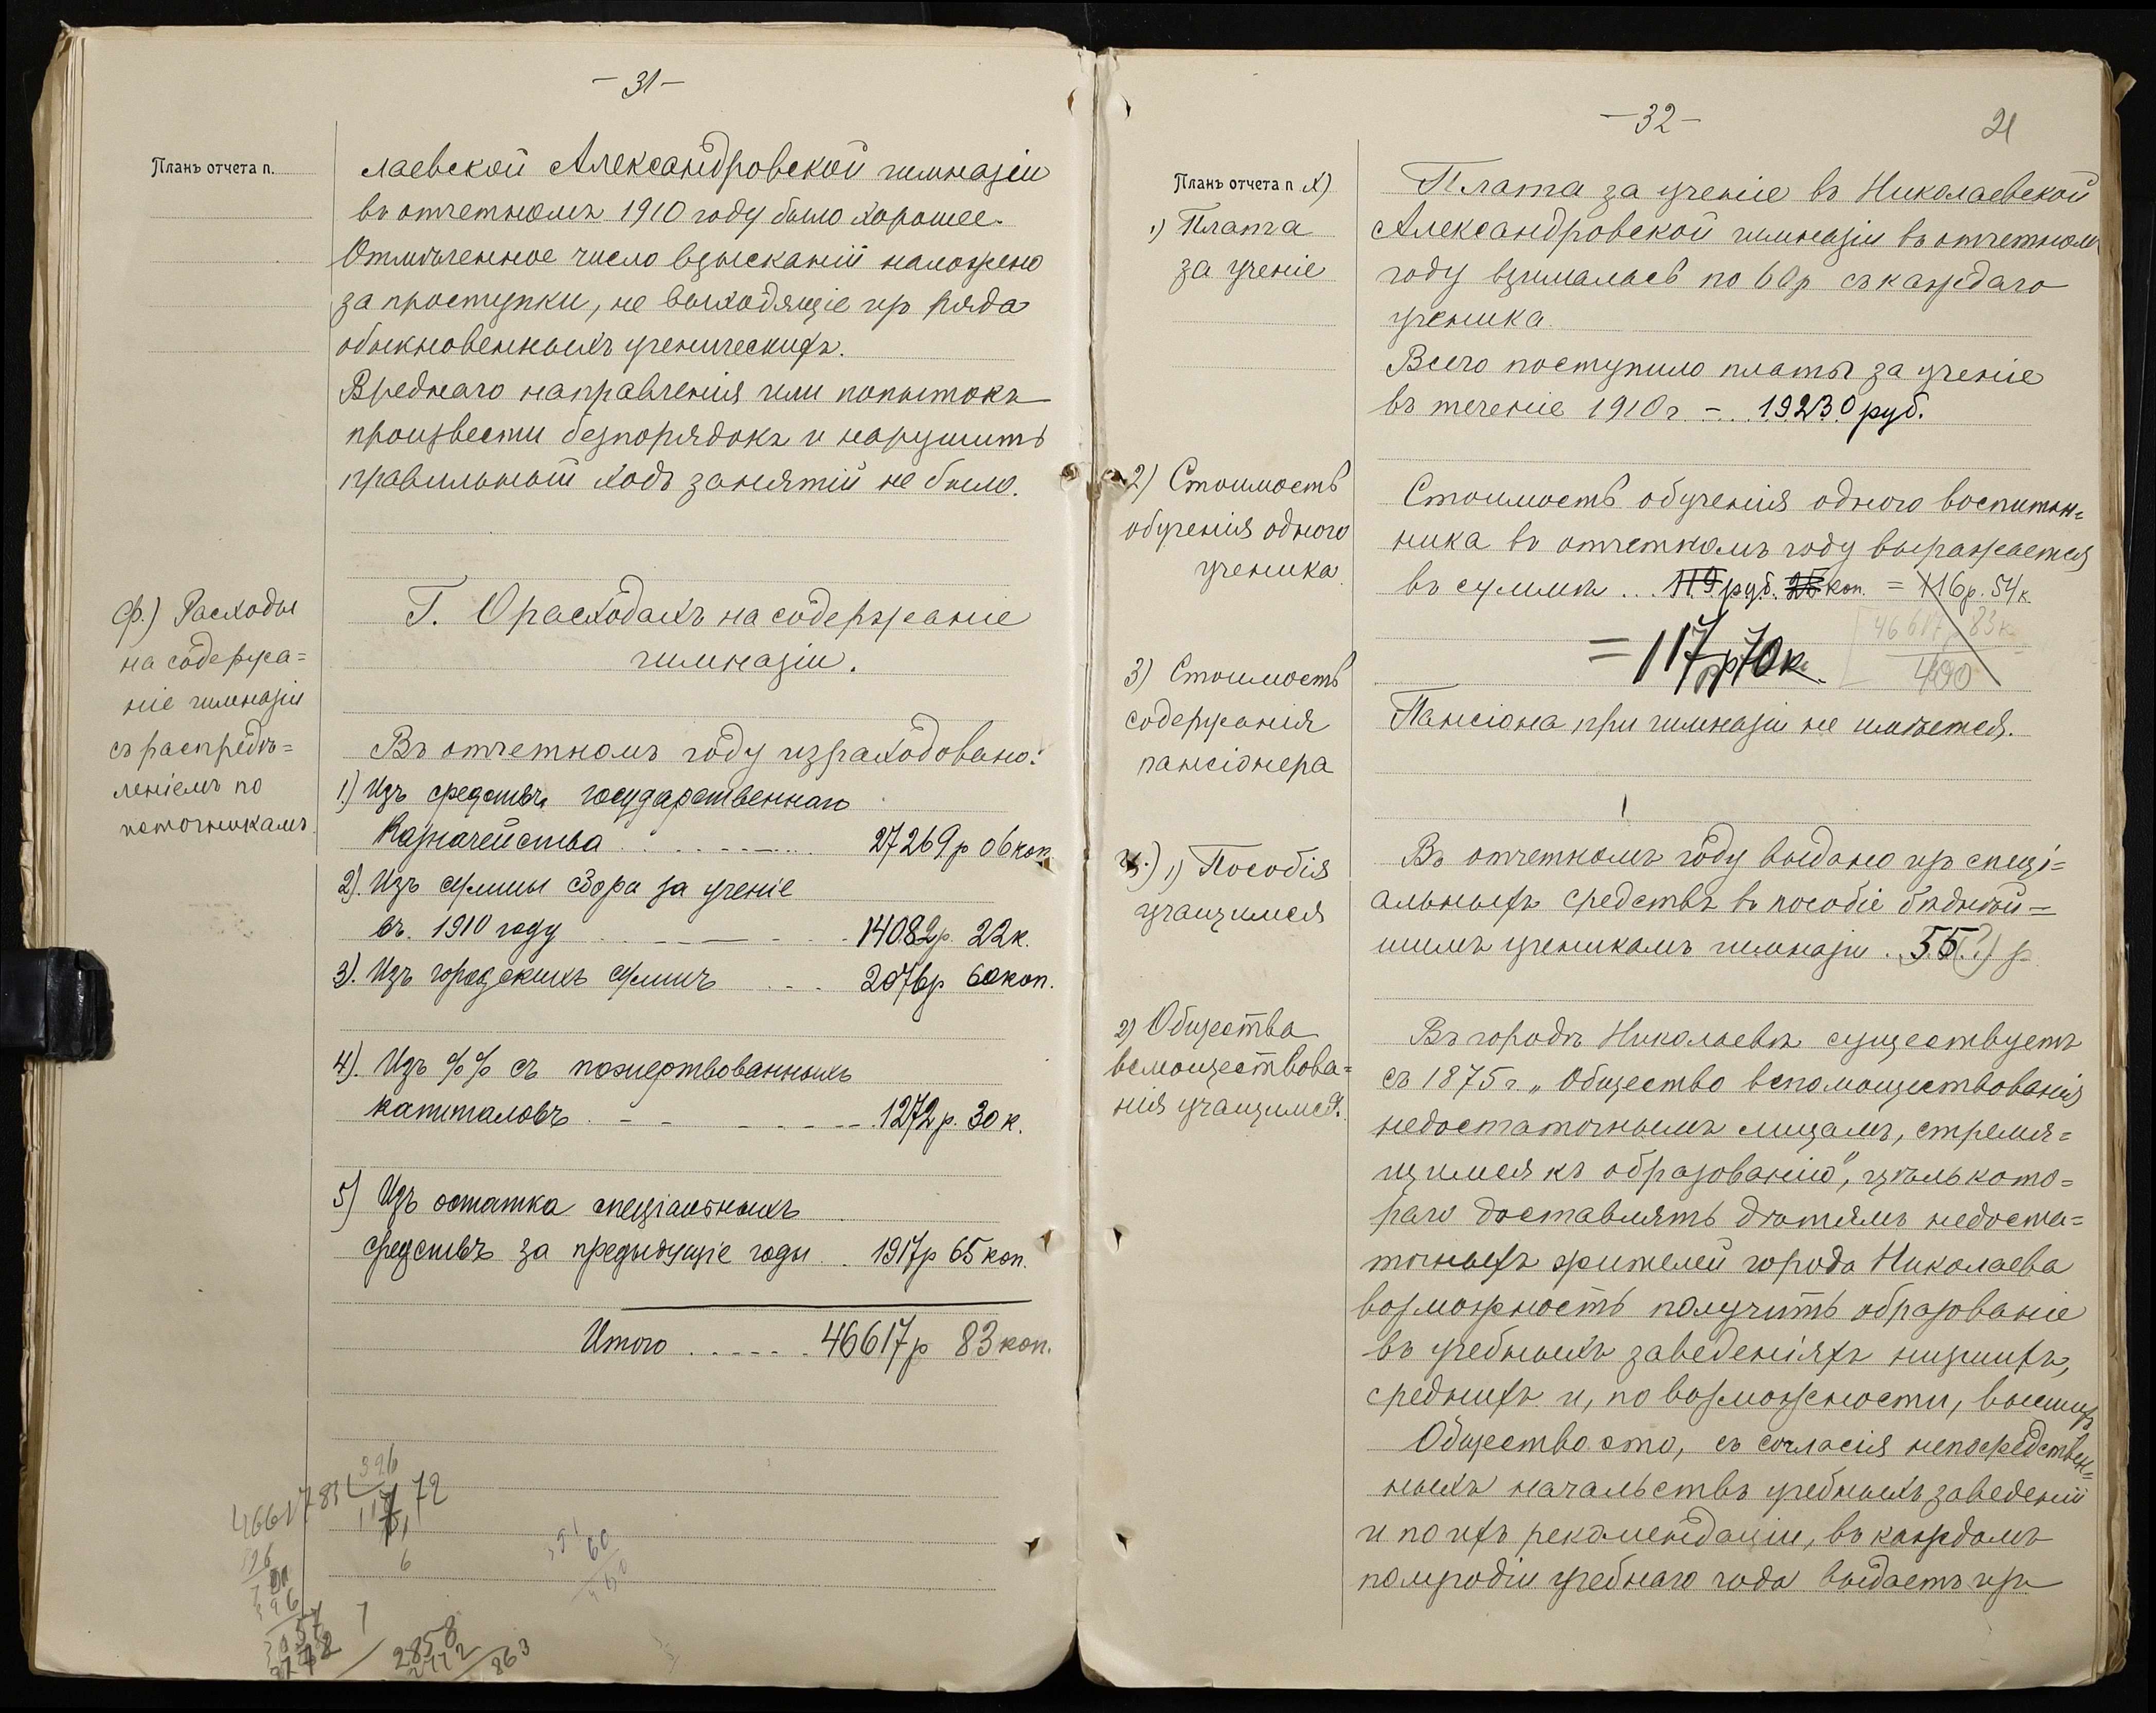 — 31 —
Планъ отчета п.
лаевской Александровской гимназіи
въ отчетномъ 1910 году было хорошее.
Отмѣченное число взысканій наложено
за проступки, не выходящіе изъ ряда
обыкновенныхъ ученическихъ.
Вреднаго направленія или попытокъ
произвести безпорядокъ и нарушить
правильный ходъ занятій не было.
ф.) Расходы
на содержа=
ніе гимназіи
съ распредѣ=
леніемъ по
источникамъ.
Г. О расходахъ на содержаніе
гимназіи.
Въ отчетномъ году израсходовано:
1.) Изъ средствъ государственнаго
Казначейства ........ 27269 р 06 коп
2). Изъ суммы сбора за ученіе
въ 1910 году ........ 14082 р. 22 к.
3). Изъ городскихъ суммъ .... 2076 р 60 коп.
4). Изъ %% съ пожертвованныхъ
капиталовъ ........ 1272 р. 30 к.
5) Изъ остатка спеціальныхъ
средствъ за предыдущіе годы .. 1917 р 65 коп.
Итого ....... 46617 р 83 коп.
4661783 396
117 72
396
2858
2772
863
— 32 —
21
Планъ отчета п X)
1) Плата
за ученіе
Плата за ученіе въ Николаевской
Александровской гимназіи въ отчетном
году взималась по 60 р съ каждаго
ученика.
Всего поступило платы за ученіе
въ теченіе 1910 г. — 19230 руб.
2) Стоимость
обученія одного
ученика.
Стоимость обученія одного воспитан=
ника въ отчетномъ году выражается
въ суммѣ ... 119 руб. 25 коп. = 116 р. 54 к.
46617 р 83 к
400
= 117 р 70 к.
3) Стоимость
содержанія
пансіонера
Пансіона при гимназіи не имѣется.
ц.) 1) Пособія
учащимся
Въ отчетномъ году выдано изъ спеці=
альныхъ средствъ въ пособіе бѣднѣй=
шимъ ученикамъ гимназіи .. 55 (?) р
2) Общества
вспомоществова=
нія учащимся.
Въ городѣ Николаевѣ существуетъ
съ 1875 г. „Общество вспомоществованія
недостаточнымъ лицамъ, стремя=
щимся къ образованію", цѣль кото=
раго доставлять дѣтямъ недоста=
точныхъ жителей города Николаева
возможность получить образованіе
въ учебныхъ заведеніяхъ низшихъ,
среднихъ и, по возможности, высшихъ
Общество это, съ согласія непосредствен=
ныхъ начальствъ учебныхъ заведеній
и по ихъ рекомендаціи, въ каждомъ
полугодіи учебнаго года выдаетъ изъ